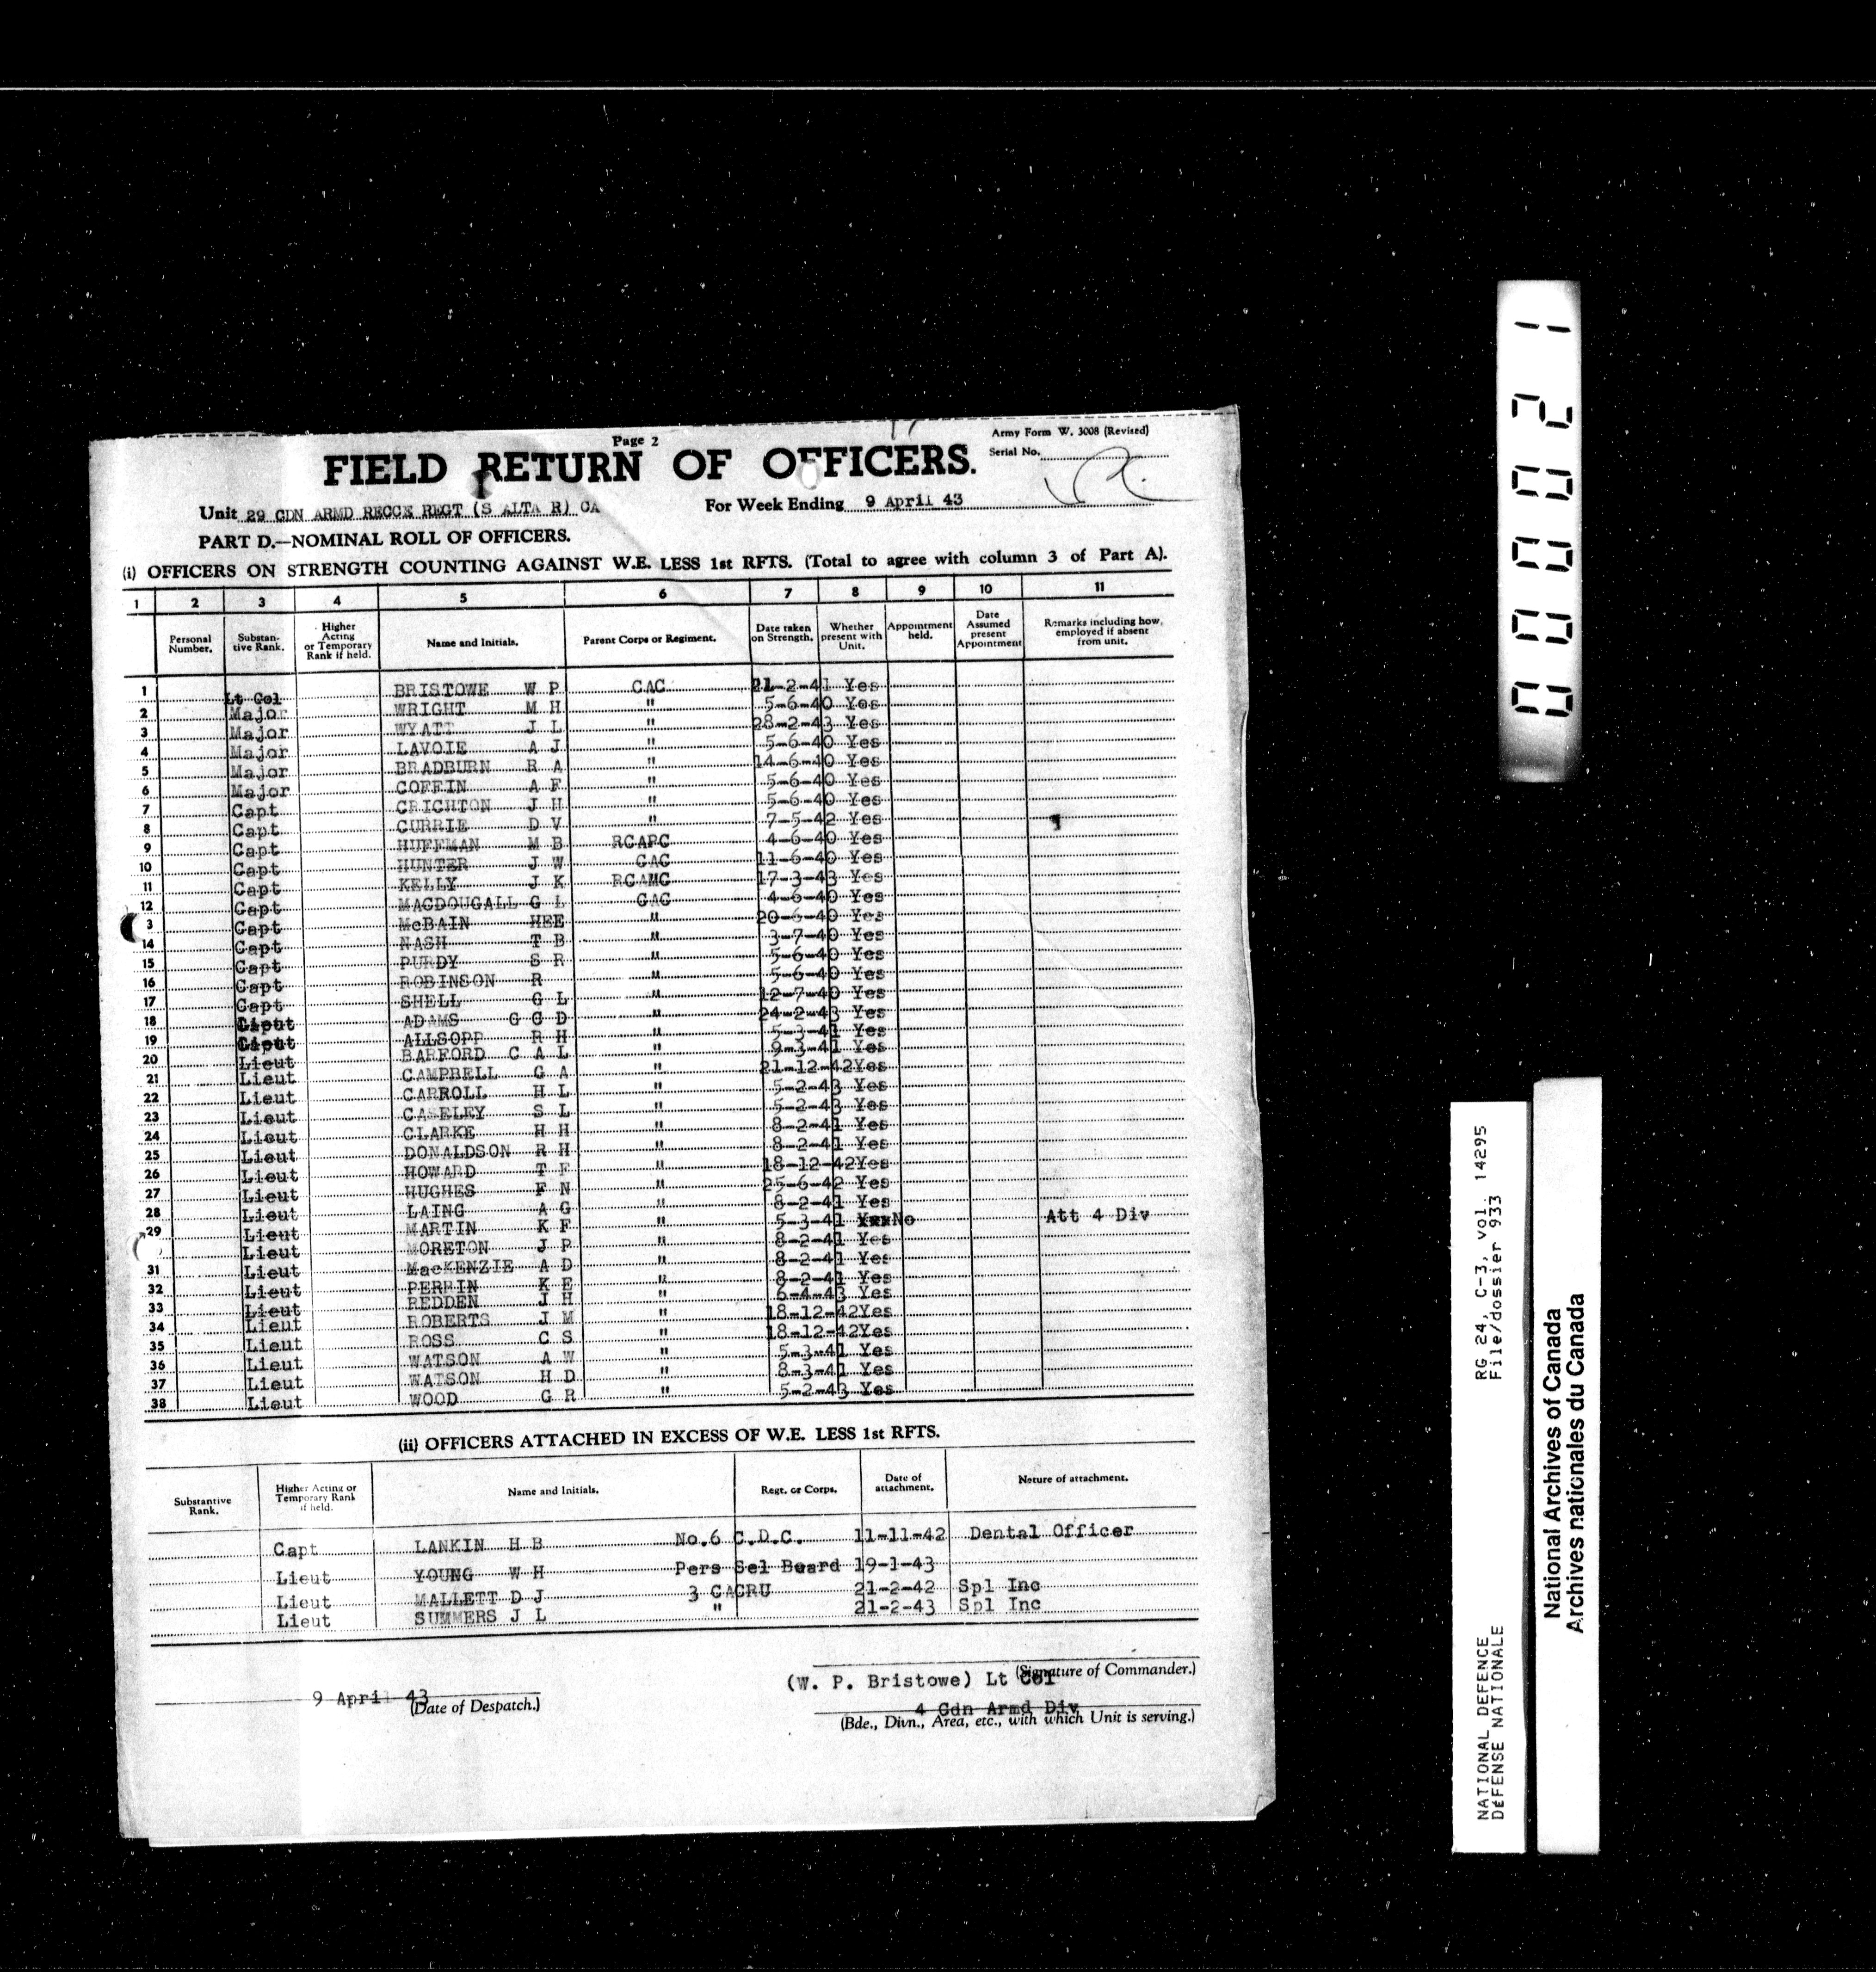 Page 2
Army Form W. 3008 (Revised)
FIELD RETURN OF OFFICERS.
Serial No.
Unit 29 CDN ARMD RECCE REGT (S ALTA R) CA
For Week Ending 9 April 43
PART D.—NOMINAL ROLL OF OFFICERS.
(i) OFFICERS ON STRENGTH COUNTING AGAINST W.E. LESS 1st RFTS. (Total to agree with column 3 of Part A).
1 2 3 4 5 6 7 8 9 10 11
Personal Number. Substan-tive Rank. Higher Acting or Temporary Rank if held. Name and Initials. Parent Corps or Regiment. Date taken on Strength. Whether present with Unit. Appointment held. Date Assumed present Appointment Remarks including how employed if absent from unit.
1 Lt Col BRISTOWE W P CAC 21-2-41 Yes
2 Major WRIGHT M H " 5-6-40 Yes
3 Major WYATT J L " 28-2-43 Yes
4 Major LAVOIE A J " 5-6-40 Yes
5 Major BRADBURN R A " 14-6-40 Yes
6 Major COFFIN A F " 5-6-40 Yes
7 Capt CRICHTON J H " 5-6-40 Yes
8 Capt CURRIE D V " 7-5-42 Yes
9 Capt HUFFMAN M B RCAPC 4-6-40 Yes
10 Capt HUNTER J W CAC 11-6-40 Yes
11 Capt KELLY J K RCAMC 17-3-43 Yes
12 Capt MACDOUGALL G L CAC 4-6-40 Yes
3 Capt McBAIN HEE " 20-6-40 Yes
14 Capt NASH T B " 3-7-40 Yes
15 Capt PURDY S R " 5-6-40 Yes
16 Capt ROBINSON R " 5-6-40 Yes
17 Capt SHELL G L " 12-7-40 Yes
18 Lieut ADAMS G C D " 24-2-43 Yes
19 Lieut ALLSOPP R H " 5-3-41 Yes
20 Lieut BARFORD C A L " 9-3-41 Yes
21 Lieut CAMPBELL G A " 21-12-42 Yes
22 Lieut CARROLL H L " 5-2-43 Yes
23 Lieut CASELEY S L " 5-2-43 Yes
24 Lieut CLARKE H H " 8-2-41 Yes
25 Lieut DONALDSON R H " 8-2-41 Yes
26 Lieut HOWARD T F " 18-12-42 Yes
27 Lieut HUGHES F N " 25-6-42 Yes
28 Lieut LAING A G " 8-2-41 Yes
29 Lieut MARTIN K F " 5-3-41 No Att 4 Div
Lieut MORETON J P " 8-2-41 Yes
31 Lieut MacKENZIE A D " 8-2-41 Yes
32 Lieut PERRIN K E " 8-2-41 Yes
33 Lieut REDDEN J H " 6-4-43 Yes
34 Lieut ROBERTS J M " 18-12-42 Yes
35 Lieut ROSS C S " 18-12-42 Yes
36 Lieut WATSON A W " 5-3-41 Yes
37 Lieut WATSON H D " 8-3-41 Yes
38 Lieut WOOD G R " 5-2-43 Yes
(ii) OFFICERS ATTACHED IN EXCESS OF W.E. LESS 1st RFTS.
Substantive Rank. Higher Acting or Temporary Rank if held. Name and Initials. Regt. or Corps. Date of attachment. Nature of attachment.
Capt LANKIN H B No.6 C.D.C. 11-11-42 Dental Officer
Lieut YOUNG W H Pers Sel Board 19-1-43
Lieut MALLETT D J 3 CACRU 21-2-42 Spl Inc
Lieut SUMMERS J L " 21-2-43 Spl Inc
(W. P. Bristowe) Lt Col
(Signature of Commander.)
9 April 43
(Date of Despatch.)
4 Cdn Armd Div
(Bde., Divn., Area, etc., with which Unit is serving.)
000021
NATIONAL DEFENCE RG 24, C-3, vol. 14295
DÉFENSE NATIONALE File/dossier 933
National Archives of Canada
Archives nationales du Canada